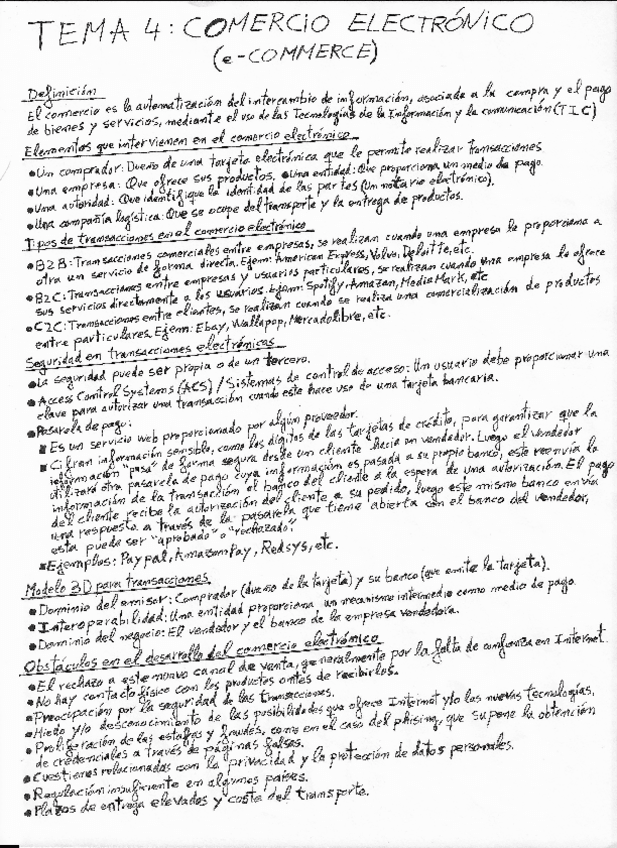 TEMA 4: COMERCIO ELECTRÓNICO
(e-COMMERCE)
Definición
El comercio es la automatización del intercambio de información, asociada a la compra y el pago
de bienes y servicios, mediante el uso de las Tecnologías de la Información y la comunicación (TIC)
Elementos que intervienen en el comercio electrónico
•Un comprador: Dueño de una tarjeta electrónica que le permite realizar transacciones
•Una empresa: Que ofrece sus productos. •Una entidad: Que proporciona un medio de pago.
•Una autoridad: Que identifique la identidad de las partes (Un notario electrónico).
•Una compañía logística: Que se ocupe del transporte y la entrega de productos.
Tipos de transacciones en el comercio electrónico
•B2B: Transacciones comerciales entre empresas, se realizan cuando una empresa le proporciona a
otra un servicio de forma directa. Ejem: American Express, Volvo, Deloitte, etc.
•B2C: Transacciones entre empresas y usuarios particulares, se realizan cuando una empresa le ofrece
sus servicios directamente a los usuarios. Ejem: Spotify, Amazon, Media Mark, etc
•C2C: Transacciones entre clientes, se realizan cuando se realiza una comercialización de productos
entre particulares. Ejem: Ebay, Wallapop, Mercadolibre, etc.
Seguridad en transacciones electrónicas
•La seguridad puede ser propia o de un tercero.
•Access Control Systems (ACS) / Sistemas de control de acceso: Un usuario debe proporcionar una
clave para autorizar una transacción cuando este hace uso de una tarjeta bancaria.
•Pasarela de pago:
▪Es un servicio web proporcionado por algún proveedor.
▪Cifran información sensible, como los dígitos de las tarjetas de crédito, para garantizar que la
información pasa de forma segura desde un cliente hacia un vendedor. Luego el vendedor
utilizará otra pasarela de pago cuya información es pasada a su propio banco, este reenvía la
información de la transacción al banco del cliente a la espera de una autorización. El pago
del cliente recibe la autorización del cliente a su pedido, luego este mismo banco envía
una respuesta a través de la pasarela que tiene abierta con el banco del vendedor,
esta puede ser "aprobado" o "rechazado".
▪Ejemplos: Paypal, AmazonPay, Redsys, etc.
Modelo 3D para transacciones
•Dominio del emisor: Comprador (dueño de la tarjeta) y su banco (que emite la tarjeta).
•Interoparabilidad: Una entidad proporciona un mecanismo intermedio como medio de pago.
•Dominio del negocio: El vendedor y el banco de la empresa vendedora.
Obstáculos en el desarrollo del comercio electrónico
•El rechazo a este nuevo canal de venta, generalmente por la falta de confianza en Internet.
•No hay contacto físico con los productos antes de recibirlos.
•Preocupación por la seguridad de las transacciones.
•Miedo y/o desconocimiento de las posibilidades que ofrece Internet y/o las nuevas tecnologías.
•Proliferación de las estafas y fraudes, como en el caso del phising, que supone la obtención
de credenciales a través de páginas falsas.
•Cuestiones relacionadas con la privacidad y la protección de datos personales.
•Regulación insuficiente en algunos países.
•Plazos de entrega elevados y coste del transporte.